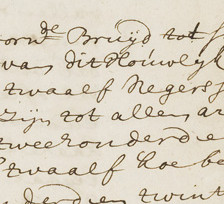 voorn:de Bruijd tot
van dit Houwelijk
twaalf Negers
zijn tot allen
tweehonderd e
twaalf koe be
derd en twint